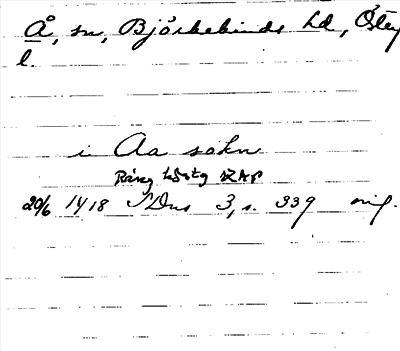 Å, sn, Björkekinds hd, Östg
l.
i Aa sokn
20/6 1418 SDns 3, s. 339 orig.